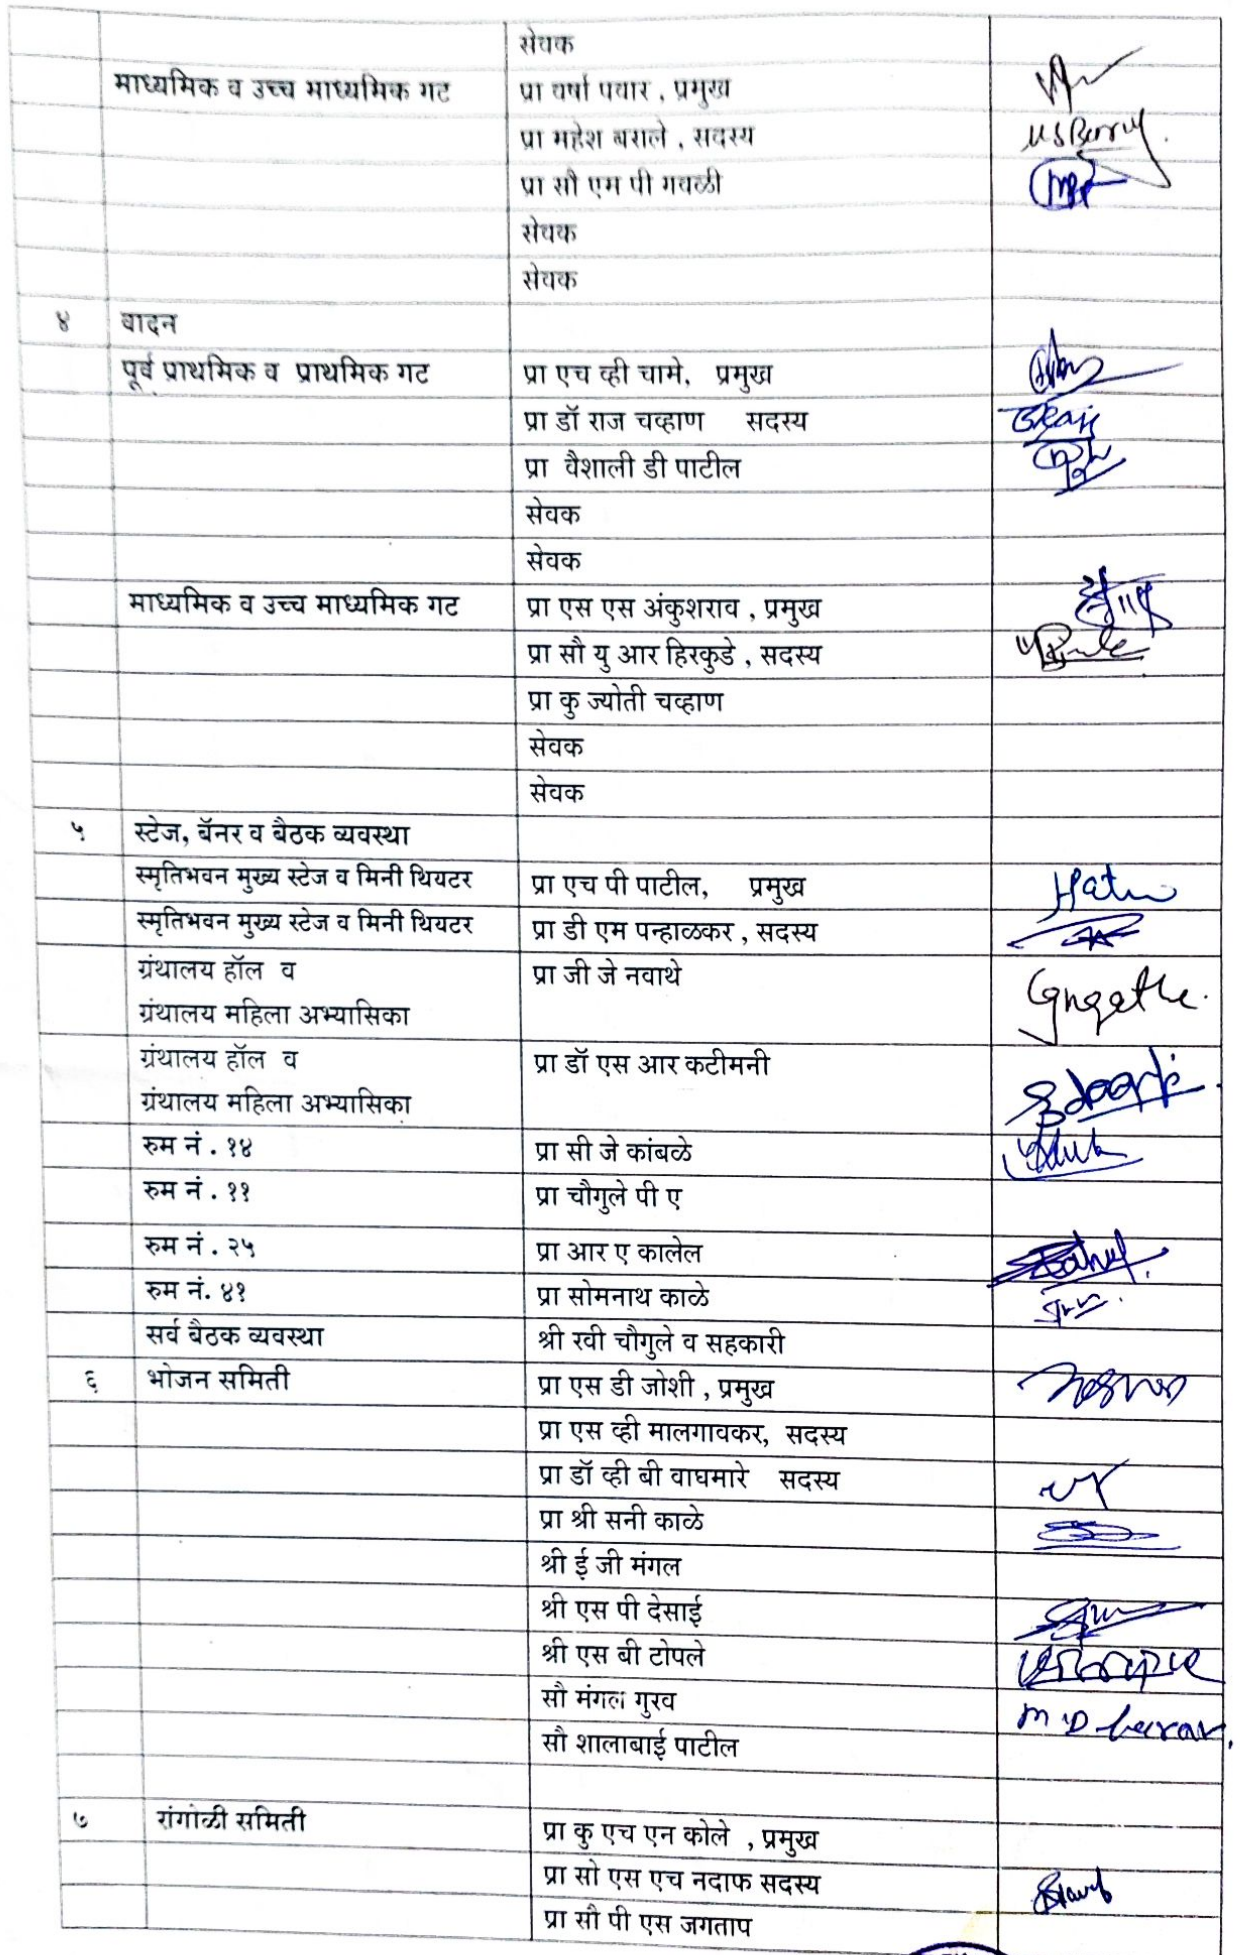 सेवक
माध्यमिक व उच्च माध्यमिक गट प्रा वर्षा पवार , प्रमुख
प्रा महेश बराले , सदस्य
प्रा सौ एम पी गवळी
सेवक
सेवक
४ वादन
पूर्व प्राथमिक व प्राथमिक गट प्रा एच व्ही चामे, प्रमुख
प्रा डॉ राज चव्हाण सदस्य
प्रा वैशाली डी पाटील
सेवक
सेवक
माध्यमिक व उच्च माध्यमिक गट प्रा एस एस अंकुशराव , प्रमुख
प्रा सौ यु आर हिरकुडे , सदस्य
प्रा कु ज्योती चव्हाण
सेवक
सेवक
५ स्टेज, बॅनर व बैठक व्यवस्था
स्मृतिभवन मुख्य स्टेज व मिनी थियटर प्रा एच पी पाटील, प्रमुख
स्मृतिभवन मुख्य स्टेज व मिनी थियटर प्रा डी एम पन्हाळकर , सदस्य
ग्रंथालय हॉल व प्रा जी जे नवाथे
ग्रंथालय महिला अभ्यासिका
ग्रंथालय हॉल व प्रा डॉ एस आर कटीमनी
ग्रंथालय महिला अभ्यासिका
रुम नं . १४ प्रा सी जे कांबळे
रुम नं . ११ प्रा चौगुले पी ए
रुम नं . २५ प्रा आर ए कालेल
रुम नं. ४१ प्रा सोमनाथ काळे
सर्व बैठक व्यवस्था श्री रवी चौगुले व सहकारी
६ भोजन समिती प्रा एस डी जोशी , प्रमुख
प्रा एस व्ही मालगावकर, सदस्य
प्रा डॉ व्ही बी वाघमारे सदस्य
प्रा श्री सनी काळे
श्री ई जी मंगल
श्री एस पी देसाई
श्री एस बी टोपले
सौ मंगल गुरव
सौ शालाबाई पाटील
७ रांगोळी समिती प्रा कु एच एन कोले , प्रमुख
प्रा सो एस एच नदाफ सदस्य
प्रा सौ पी एस जगताप